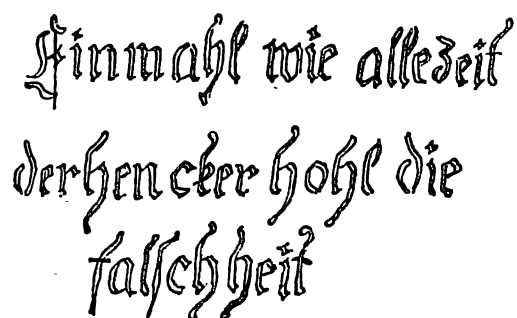 Einmahl wie allezeit
der hencker hohl die
falschheit